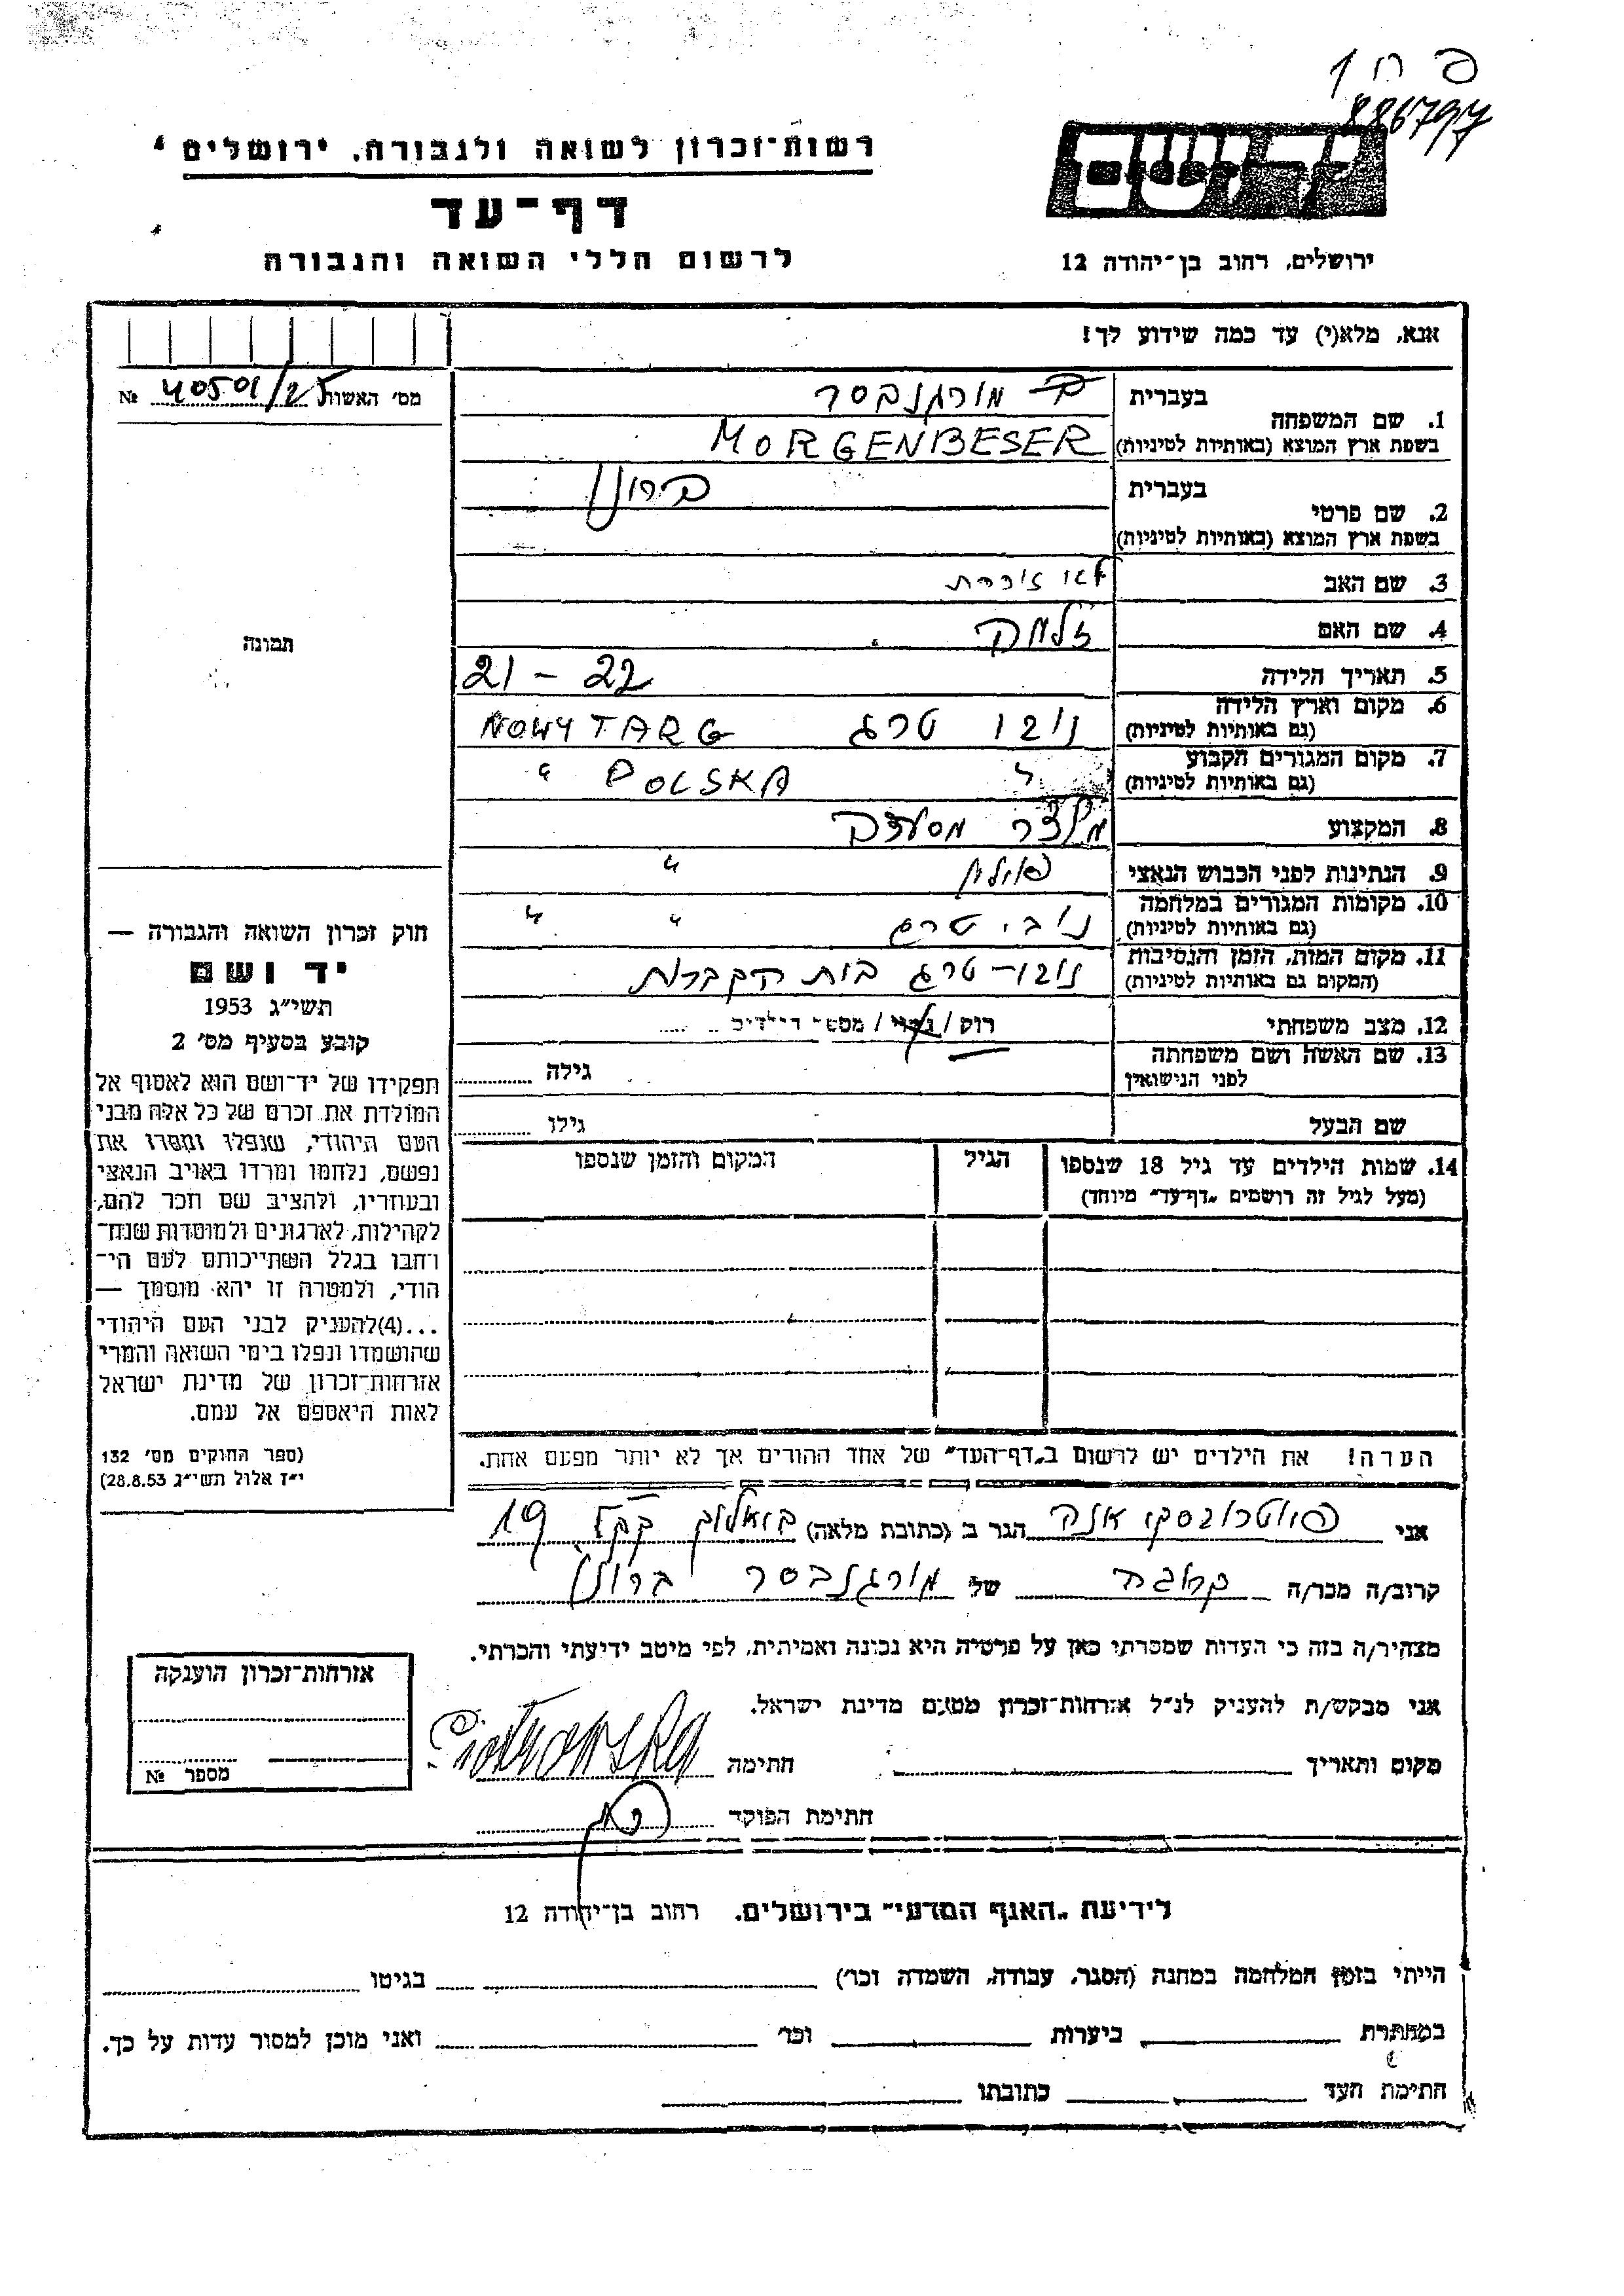 פ ח 1
886797
רשות-זכרון לשואה ולגבורה, ירושלים
דף-עד
לרשום חללי השואה והגבורה
יד ושם
ירושלים, רחוב בן-יהודה 12
אנא, מלא(י) עד כמה שידוע לך!
מס׳ האשור 40501/25 №
תמונה
חוק זכרון השואה והגבורה —
יד ושם
תשי״ג 1953
קובע בסעיף מס׳ 2
תפקידו של יד-ושם הוא לאסוף אל
המולדת את זכרם של כל אלה מבני
העם היהודי, שנפלו ומסרו את
נפשם, נלחמו ומרדו באויב הנאצי
ובעוזריו, ולהציב שם וזכר להם,
לקהילות, לארגונים ולמוסדות שנח-
רחבו בגלל השתייכותם לעם הי-
הודי, ולמטרה זו יהא מוסמך —
...(4)להעניק לבני העם היהודי
שהושמדו ונפלו בימי השואה והמרי
אזרחות-זכרון של מדינת ישראל
לאות היאספם אל עמם.
(ספר החוקים מס׳ 132
י״ז אלול תשי״ג 28.8.53)
1. שם המשפחה
בעברית מורגנבסר
בשפת ארץ המוצא (באותיות לטיניות) MORGENBESER
2. שם פרטי
בעברית ברונו
בשפת ארץ המוצא (באותיות לטיניות)
3. שם האב לא זוכרת
4. שם האם
5. תאריך הלידה 21 – 22
6. מקום וארץ הלידה נובו טרג NOWY TARG
(גם באותיות לטיניות)
7. מקום המגורים הקבוע " POLSKA "
(גם באותיות לטיניות)
8. המקצוע מלצר מסעדה
9. הנתינות לפני הכבוש הנאצי פולין "
10. מקומות המגורים במלחמה נובי טרג " "
(גם באותיות לטיניות)
11. מקום המות, הזמן והנסיבות נובו-טרג בית הקברות
(המקום גם באותיות לטיניות)
12. מצב משפחתי רווק / נשוי / מספר הילדים
13. שם האשה ושם משפחתה גילה
לפני הנישואין
שם הבעל גילו
14. שמות הילדים עד גיל 18 שנספו הגיל המקום והזמן שנספו
(מעל לגיל זה רושמים „דף-עד״ מיוחד)
הערה! את הילדים יש לרשום ב„דף-העד״ של אחד ההורים אך לא יותר מפעם אחת.
אני פיוטרובסקי אנה הגר ב (כתובת מלאה) קקל 19
קרוב/ה מכר/ה קרובה של מורגנבסר ברונו
מצהיר/ה בזה כי העדות שמסרתי כאן על פרטיה היא נכונה ואמיתית, לפי מיטב ידיעתי והכרתי.
אני מבקש/ת להעניק לנ״ל אזרחות-זכרון מטעם מדינת ישראל.
מקום ותאריך חתימה Piotrowska
חתימת הפוקד
אזרחות-זכרון הוענקה
מספר №
לידיעת „האגף המדעי״ בירושלים. רחוב בן-יהודה 12
הייתי בזמן המלחמה במחנה (הסגר, עבודה, השמדה וכו׳) בגיטו
במחתרת ביערות וכו׳ ואני מוכן למסור עדות על כך.
חתימת העד כתובתו